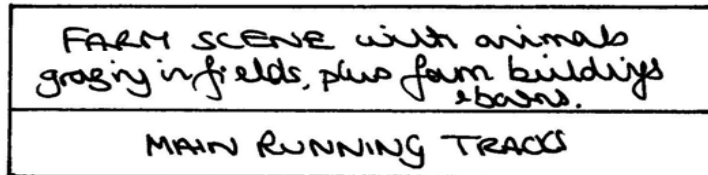 FARM SCENE with animals
grazing in fields, plus farm buildings
& barns.
MAIN RUNNING TRACKS